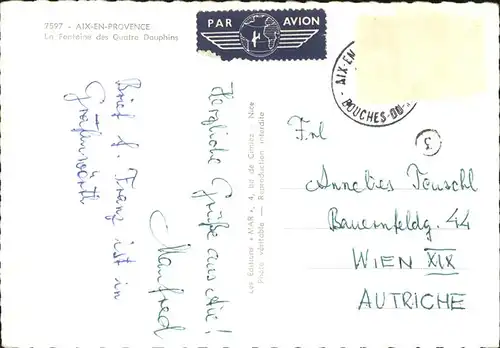 7597 - AIX-EN-PROVENCE
La Fontaine des Quatre Dauphins
PAR AVION
AIX-EN
BOUCHES-DU-
Brief f. Franz ist in
Grafenwörth
Herzliche Grüße aus Aix!
Manfred
Les Editions « MAR », 4, bd de Cimiez Nice
Photo véritable — Reproduction interdite
3
Frl
Annelies Teuschl
Bauernfeldg. 44
WIEN XIX
AUTRICHE